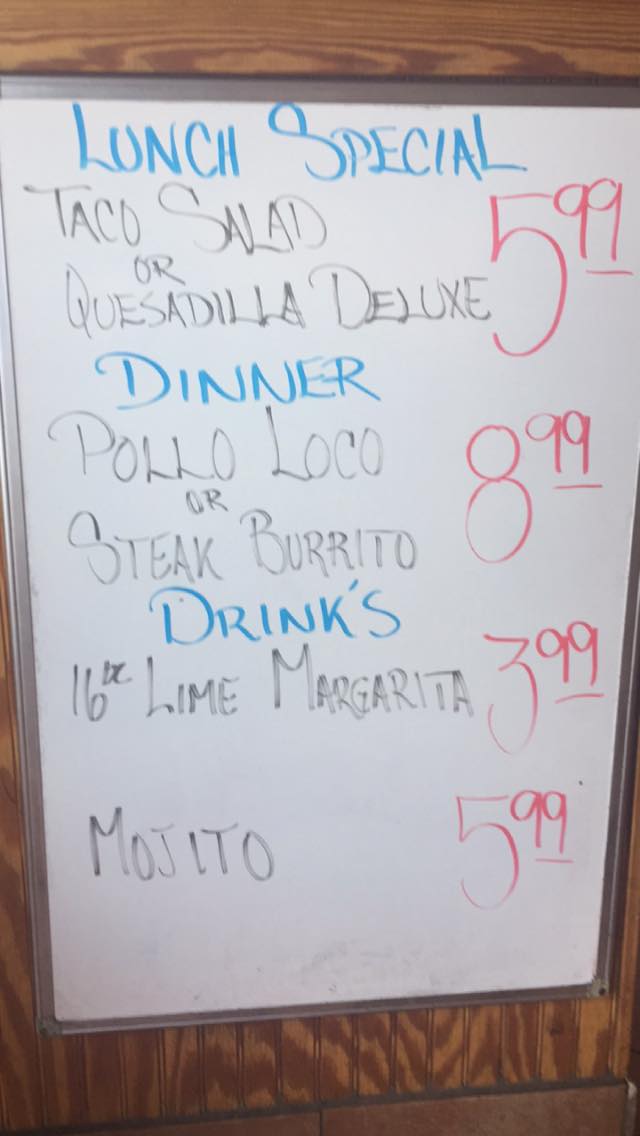 LUNCH SPECIAL
TACO SALAD 5.99
OR
QUESADILLA DELUXE
DINNER
POLLO LOCO 8.99
OR
STEAK BURRITO
DRINK'S
16oz LIME MARGARITA 3.99
MOJITO 5.99